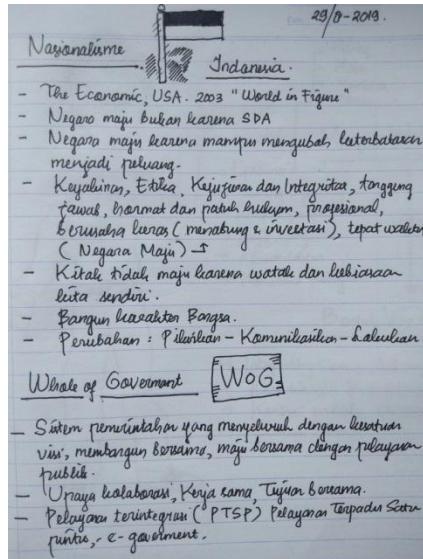 29/8-2019.
Nasionalisme Indonesia.
- The Economic, USA. 2003 "World in Figure"
- Negara maju bukan karena SDA
- Negara maju karena mampu mengubah keterbatasan
menjadi peluang.
- Keyakinan, Etika, Kejujuran dan Integritas, tanggung
jawab, hormat dan patuh hukum, profesional,
berusaha keras (menabung & investasi), tepat waktu
(Negara Maju)
- Kitak tidak maju karena watak dan kebiasaan
kita sendiri.
- Bangun karakter Bangsa.
- Perubahan : Pikirkan - Komunikasikan - Lakukan
Whole of Goverment WoG
- Sistem pemerintahan yang menyeluruh dengan kesatuan
visi, membangun bersama, maju bersama dengan pelayanan
publik.
- Upaya kolaborasi, Kerja sama, Tujuan bersama.
- Pelayanan terintegrasi (PTSP) Pelayanan Terpadu Satu
pintu, - e-goverment.